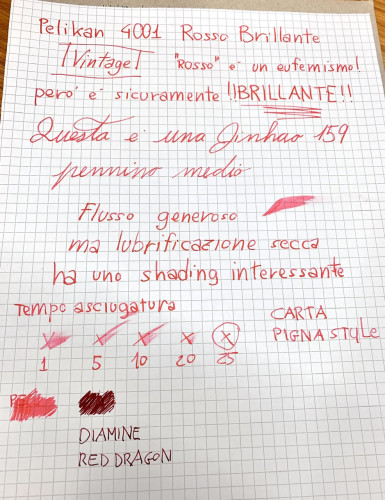 Pelikan 4001 Rosso Brillante
!Vintage!
"Rosso" e' un eufemismo!
però e' sicuramente !!BRILLANTE!!
Questa è una Jinhao 159
pennino medio
Flusso generoso
ma lubrificazione secca
ha uno shading interessante
Tempo asciugatura
X X X X X
1 5 10 20 25
CARTA
PIGNA STYLE
DIAMINE
RED DRAGON